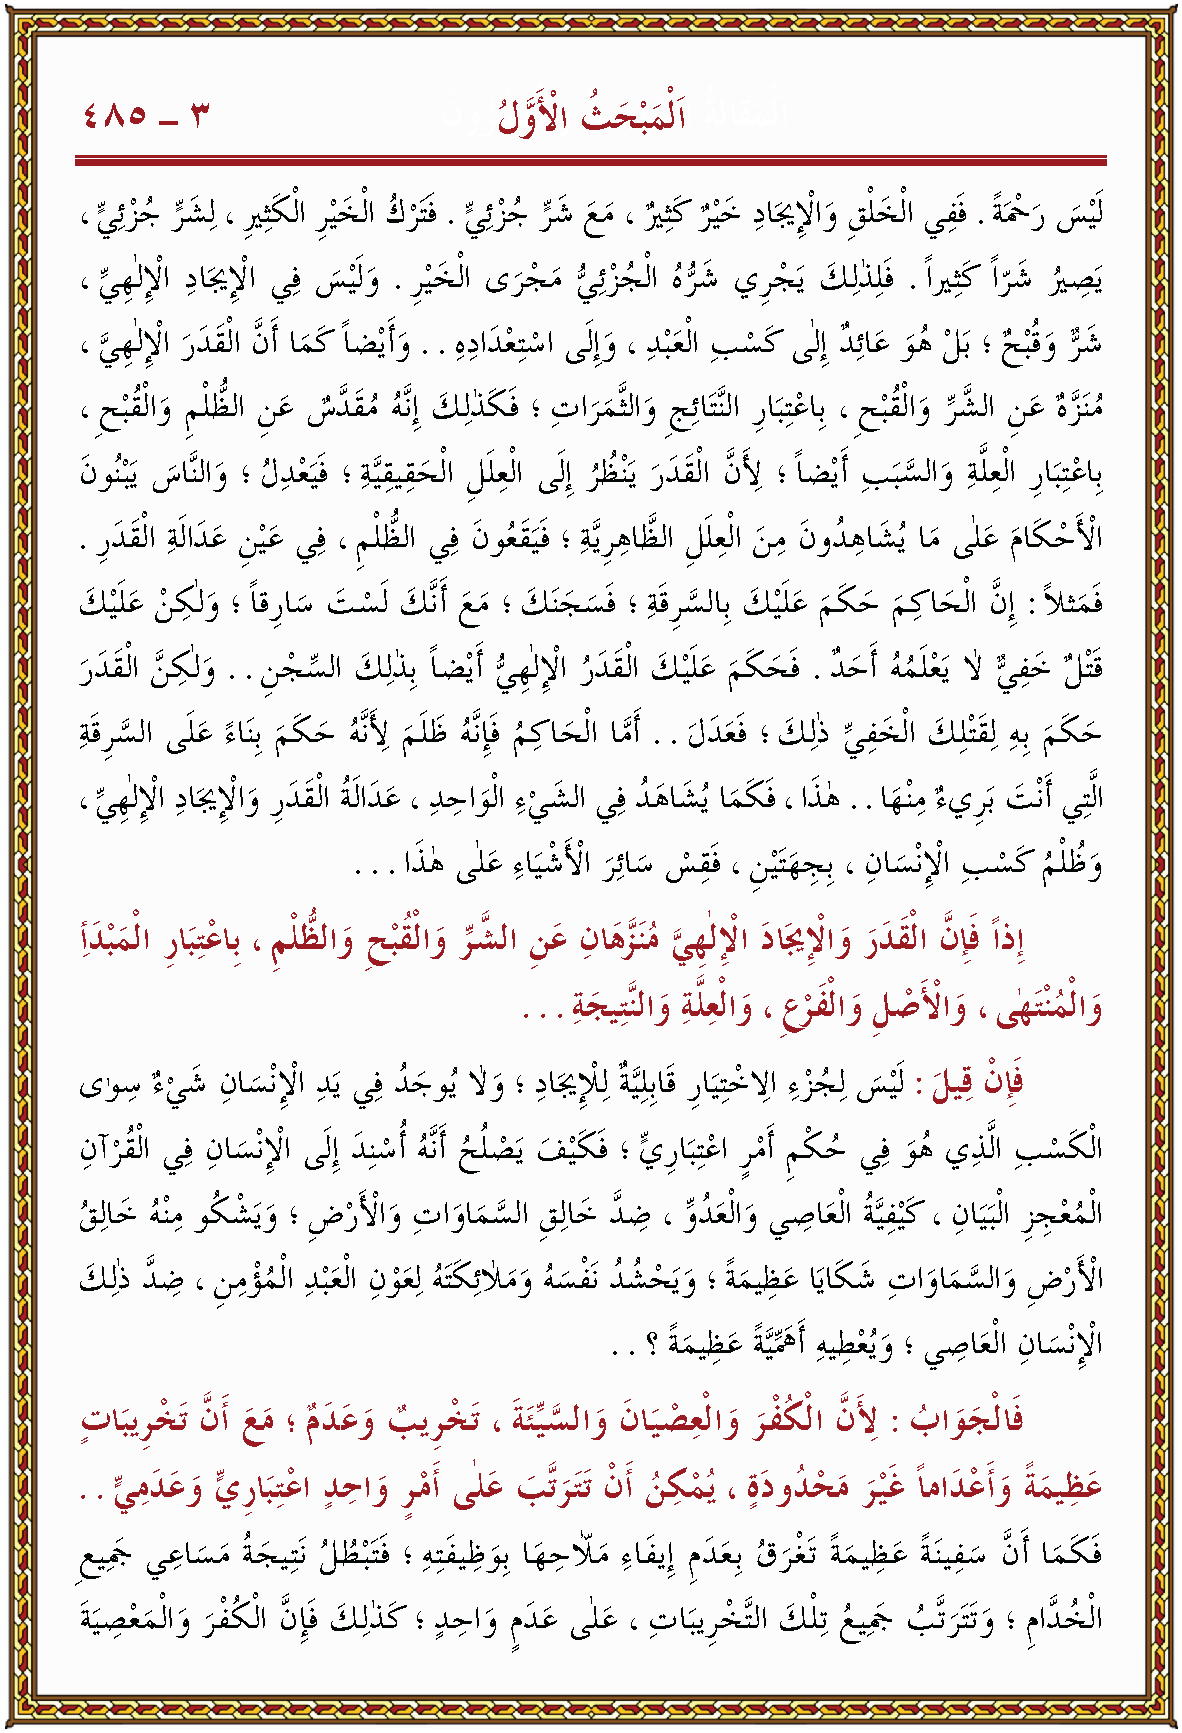 اَلْمَبْحَثُ الْأَوَّلُ ٣ ـ ٤٨٥
لَيْسَ رَحْمَةً . فَفِي الْخَلْقِ وَالْإِيجَادِ خَيْرٌ كَثِيرٌ ، مَعَ شَرٍّ جُزْئِيٍّ . فَتَرْكُ الْخَيْرِ الْكَثِيرِ ، لِشَرٍّ جُزْئِيٍّ ،
يَصِيرُ شَرّاً كَثِيراً . فَلِذٰلِكَ يَجْرِي شَرُّهُ الْجُزْئِيُّ مَجْرَى الْخَيْرِ . وَلَيْسَ فِي الْإِيجَادِ الْإِلٰهِيِّ ،
شَرٌّ وَقُبْحٌ ؛ بَلْ هُوَ عَائِدٌ إِلٰى كَسْبِ الْعَبْدِ ، وَإِلَى اسْتِعْدَادِهِ . . وَأَيْضاً كَمَا أَنَّ الْقَدَرَ الْإِلٰهِيَّ ،
مُنَزَّهٌ عَنِ الشَّرِّ وَالْقُبْحِ ، بِاعْتِبَارِ النَّتَائِجِ وَالثَّمَرَاتِ ؛ فَكَذٰلِكَ إِنَّهُ مُقَدَّسٌ عَنِ الظُّلْمِ وَالْقُبْحِ ،
بِاعْتِبَارِ الْعِلَّةِ وَالسَّبَبِ أَيْضاً ؛ لِأَنَّ الْقَدَرَ يَنْظُرُ إِلَى الْعِلَلِ الْحَقِيقِيَّةِ ؛ فَيَعْدِلُ ؛ وَالنَّاسَ يَبْنُونَ
الْأَحْكَامَ عَلٰى مَا يُشَاهِدُونَ مِنَ الْعِلَلِ الظَّاهِرِيَّةِ ؛ فَيَقَعُونَ فِي الظُّلْمِ ، فِي عَيْنِ عَدَالَةِ الْقَدَرِ .
فَمَثلاً : إِنَّ الْحَاكِمَ حَكَمَ عَلَيْكَ بِالسَّرِقَةِ ؛ فَسَجَنَكَ ؛ مَعَ أَنَّكَ لَسْتَ سَارِقاً ؛ وَلٰكِنْ عَلَيْكَ
قَتْلٌ خَفِيٌّ لٰا يَعْلَمُهُ أَحَدٌ . فَحَكَمَ عَلَيْكَ الْقَدَرُ الْإِلٰهِيُّ أَيْضاً بِذٰلِكَ السِّجْنِ . . وَلٰكِنَّ الْقَدَرَ
حَكَمَ بِهِ لِقَتْلِكَ الْخَفِيِّ ذٰلِكَ ؛ فَعَدَلَ . . أَمَّا الْحَاكِمُ فَإِنَّهُ ظَلَمَ لِأَنَّهُ حَكَمَ بِنَاءً عَلَى السَّرِقَةِ
الَّتِي أَنْتَ بَرِيءٌ مِنْهَا . . هٰذَا ، فَكَمَا يُشَاهَدُ فِي الشَيْءِ الْوَاحِدِ ، عَدَالَةُ الْقَدَرِ وَالْإِيجَادِ الْإِلٰهِيِّ ،
وَظُلْمُ كَسْبِ الْإِنْسَانِ ، بِجِهَتَيْنِ ، فَقِسْ سَائِرَ الْأَشْيَاءِ عَلٰى هٰذَا . . .
إِذاً فَإِنَّ الْقَدَرَ وَالْإِيجَادَ الْإِلٰهِيَّ مُنَزَّهَانِ عَنِ الشَّرِّ وَالْقُبْحِ وَالظُّلْمِ ، بِاعْتِبَارِ الْمَبْدَأِ
وَالْمُنْتَهٰى ، وَالْأَصْلِ وَالْفَرْعِ ، وَالْعِلَّةِ وَالنَّتِيجَةِ . . .
فَإِنْ قِيلَ : لَيْسَ لِجُزْءِ الِاخْتِيَارِ قَابِلِيَّةٌ لِلْإِيجَادِ ؛ وَلٰا يُوجَدُ فِي يَدِ الْإِنْسَانِ شَيْءٌ سِوٰى
الْكَسْبِ الَّذِي هُوَ فِي حُكْمِ أَمْرٍ اعْتِبَارِيٍّ ؛ فَكَيْفَ يَصْلُحُ أَنَّهُ أُسْنِدَ إِلَى الْإِنْسَانِ فِي الْقُرْآنِ
الْمُعْجِزِ الْبَيَانِ ، كَيْفِيَّةُ الْعَاصِي وَالْعَدُوِّ ، ضِدَّ خَالِقِ السَّمَاوَاتِ وَالْأَرْضِ ؛ وَيَشْكُو مِنْهُ خَالِقُ
الْأَرْضِ وَالسَّمَاوَاتِ شَكَايَا عَظِيمَةً ؛ وَيَحْشُدُ نَفْسَهُ وَمَلٰائِكَتَهُ لِعَوْنِ الْعَبْدِ الْمُؤْمِنِ ، ضِدَّ ذٰلِكَ
الْإِنْسَانِ الْعَاصِي ؛ وَيُعْطِيهِ أَهَمِّيَّةً عَظِيمَةً ؟ . .
فَالْجَوَابُ : لِأَنَّ الْكُفْرَ وَالْعِصْيَانَ وَالسَّيِّئَةَ ، تَخْرِيبٌ وَعَدَمٌ ؛ مَعَ أَنَّ تَخْرِيبَاتٍ
عَظِيمَةً وَأَعْدَاماً غَيْرَ مَحْدُودَةٍ ، يُمْكِنُ أَنْ تَتَرَتَّبَ عَلٰى أَمْرٍ وَاحِدٍ اعْتِبَارِيٍّ وَعَدَمِيٍّ . .
فَكَمَا أَنَّ سَفِينَةً عَظِيمَةً تَغْرَقُ بِعَدَمِ إِيفَاءِ مَلّٰاحِهَا بِوَظِيفَتِهِ ؛ فَتَبْطُلُ نَتِيجَةُ مَسَاعِي جَمِيعِ
الْخُدَّامِ ؛ وَتَتَرَتَّبُ جَمِيعُ تِلْكَ التَّخْرِيبَاتِ ، عَلٰى عَدَمٍ وَاحِدٍ ؛ كَذٰلِكَ فَإِنَّ الْكُفْرَ وَالْمَعْصِيَةَ